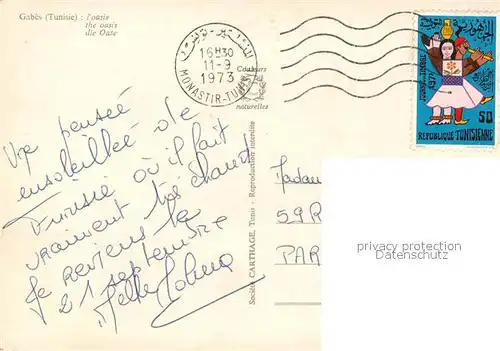 Gabès (Tunisie) : l'oasis
the oasis
die Oase
16H30
11-9
1973
MONASTIR-TUNISIE
Couleurs
naturelles
50
REPUBLIQUE TUNISIENNE
Une pensée
ensoleillée de
Tunisie où il fait
vraiment très chaud
Je reviens le
21 septembre
Société CARTHAGE, Tunis - Reproduction interdite
Madam
59 R
PAR
privacy protection
oldthing.de